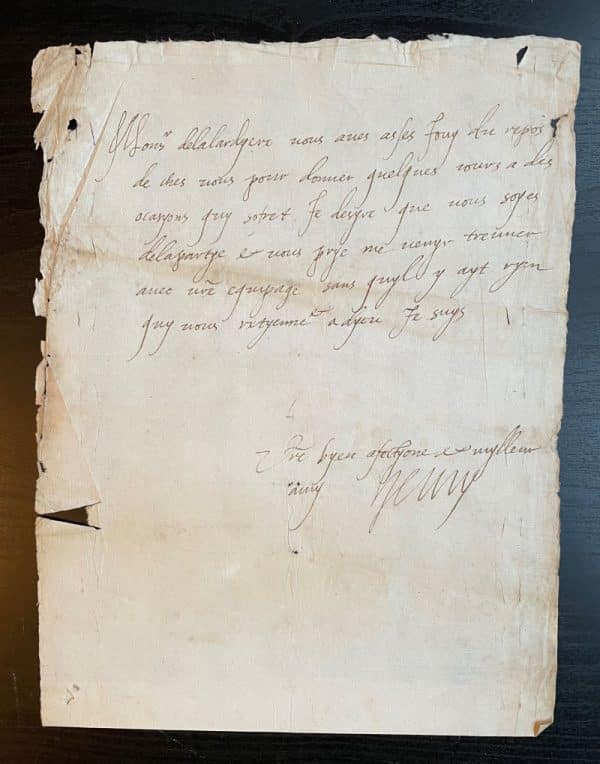 Monsr delalardyere vous aves asses jouy du repos
de ches vous pour donner quelques jours a des
ocasyons quy sofret Je desyre que vous soyes
delapartye & vous prye me venyr treuver
avec vre equipage sans quyl y ayt ryen
quy vous retyenne adyeu Je suys
Vre byen afectyone & mylleur
amy Henry